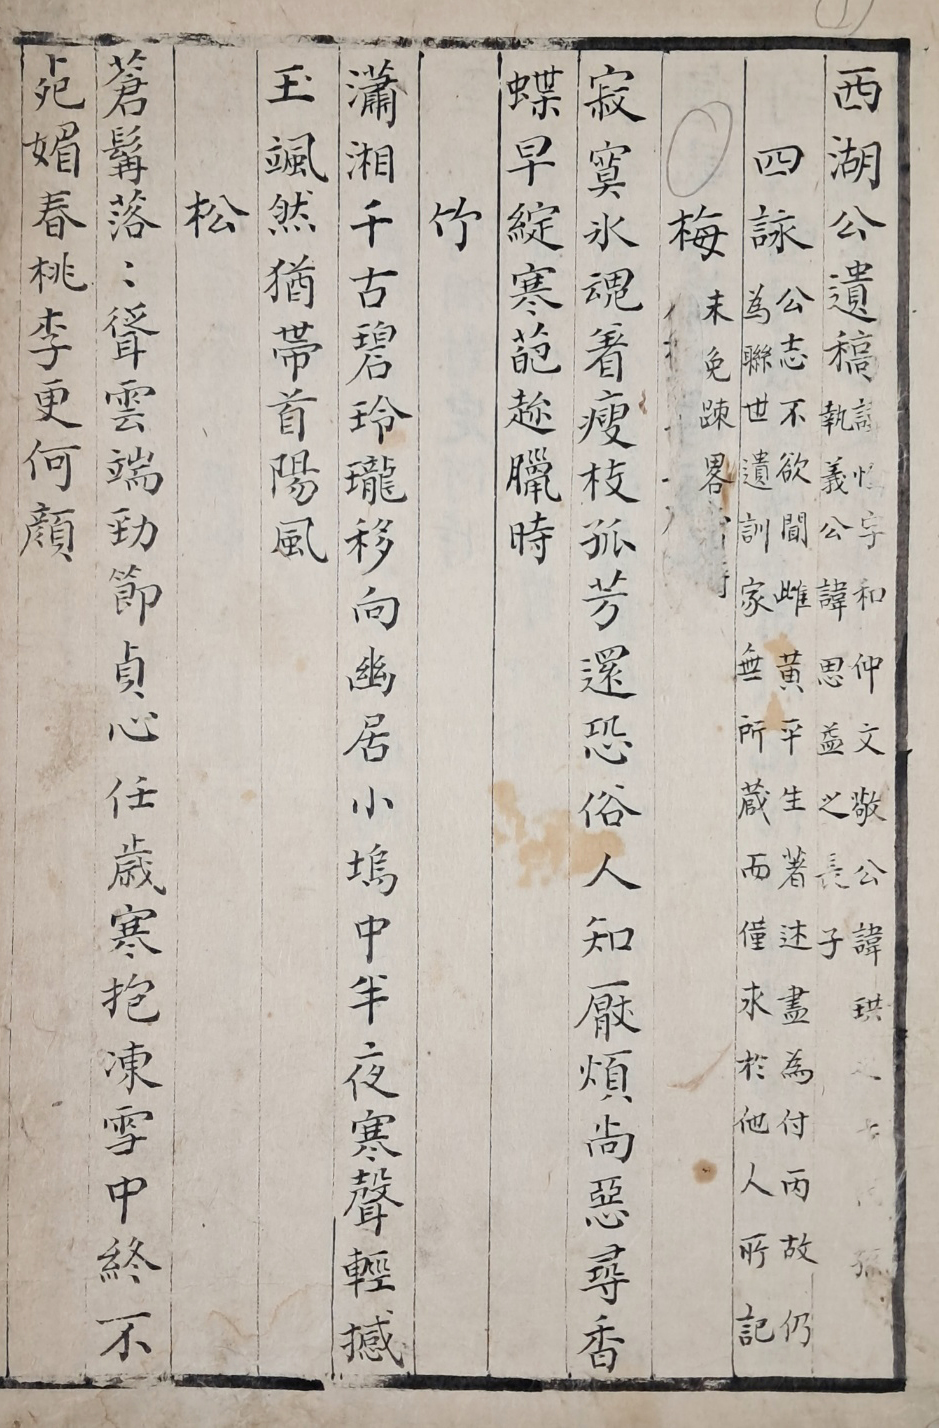 西湖公遺稿 諱 字和仲文敬公諱珙
執義公諱思益之長子
四詠 公志不欲聞雌黃平生著述盡為付丙故仍
為聯世遺訓家無所蔵而僅求於他人所記
梅 未免踈畧
寂寞氷魂着瘦枝孤芳還恐俗人知厭煩尚惡尋香
蝶早綻寒葩趂臘時
竹
瀟湘千古碧玲瓏移向幽居小塢中半夜寒聲輕撼
玉颯然猶帶首陽風
松
蒼髯落〻聳雲端勁節貞心任歲寒抱凍雪中終不
宛媚春桃李更何顔